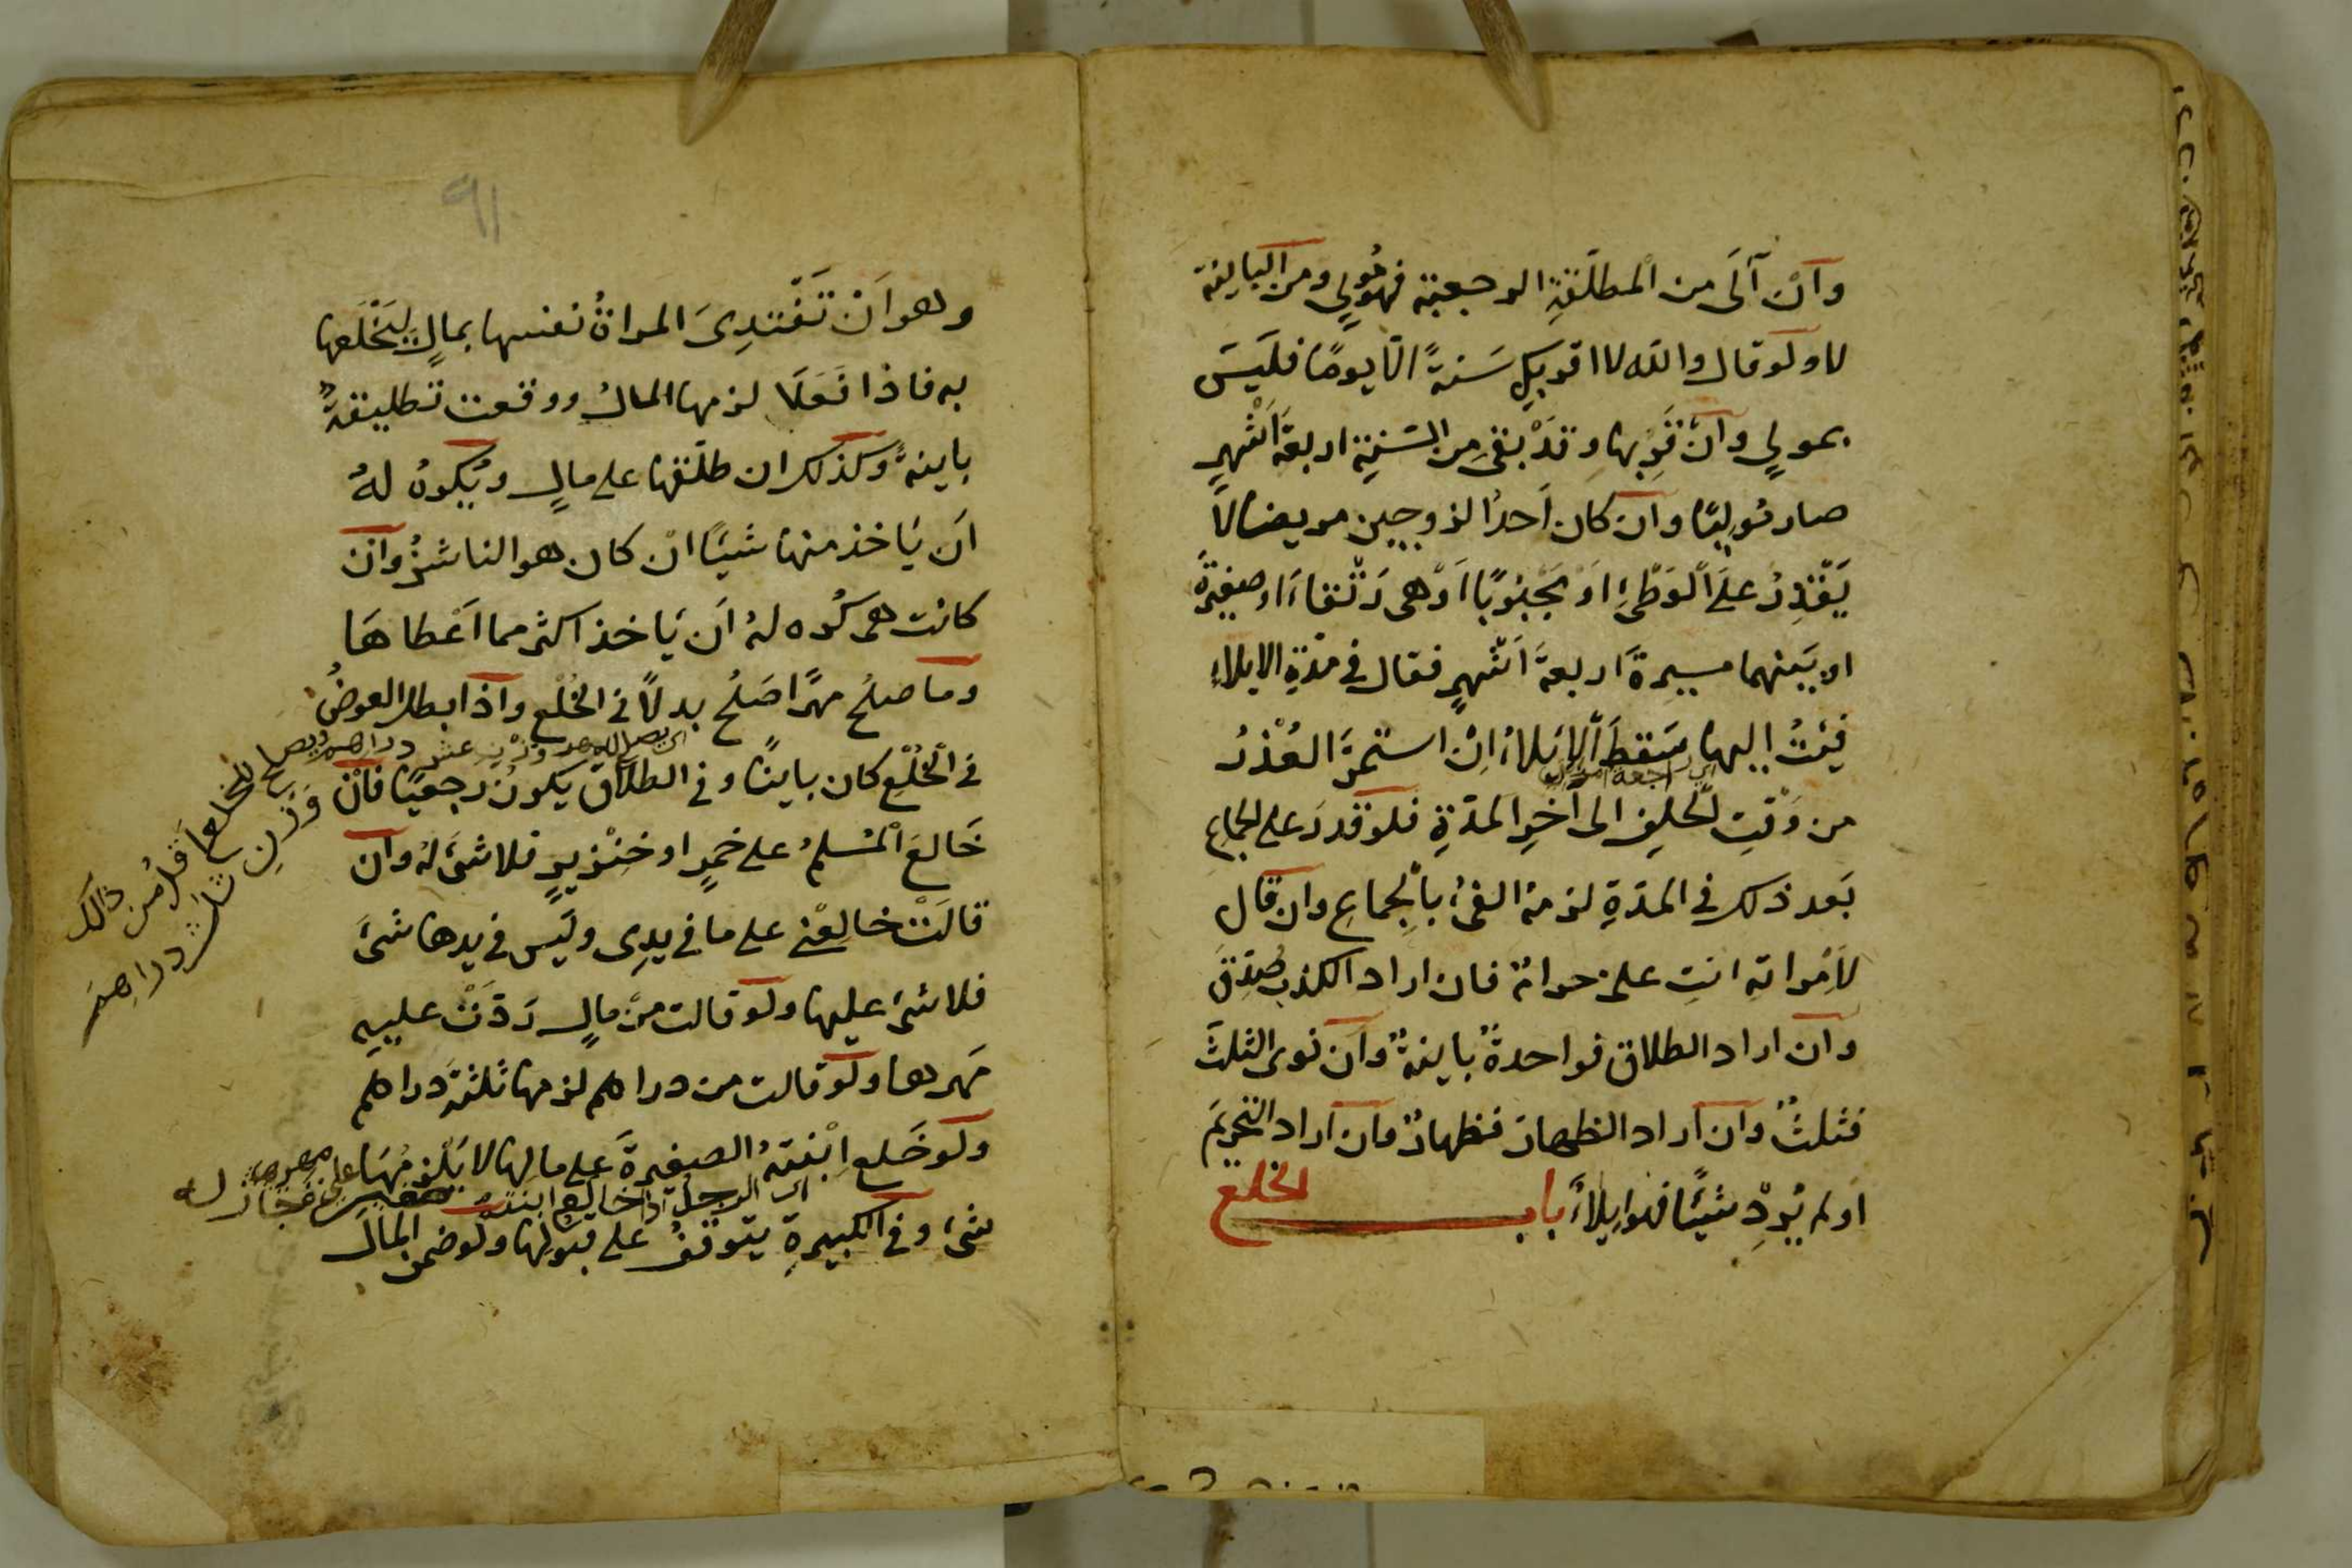 وَاِنْ آلَى من الْمطلّقةِ الرجعية فهُوَ مُولٍي ومن الباينة
لا ولَو قال واللّه لا اقربكِ سَنةً الّا يومًا فليَسَ
بمولي وانْ قَرِبها وقدْ بقى مِن السّنةِ اربعةُ اَشْهرٍ
صار مُوليًا وان كان اَحدُ الزوجين مريضا لا
يَقْدِرُ علَى الْوَطْئِ اَوْ مَجْبُوبًا اَوْ هى رَتْقَاءَ او صغيرةً
او بَينهما مسيرةَ اربعةَ اَشْهرٍ فقال فى مدّةِ الايلاءِ
فِئتُ اليها سَقطَ الْاِيْلاءُ اِنِ استمرَّ العُذْرُ
من وَقْتِ الْحلِفِ الى آخرِ المدّةِ فلو قدرَ على الجماعِ
بَعد ذلك فى المدّةِ لزمهُ الفئُ بالْجِماعِ وان قال
لاِمْراته انتِ علىّ حرامٌ فان اراد الكذب صُدّقَ
وان اراد الطلاق فواحدةٌ باينةٌ وان نوى الثلثَ
فثلثٌ وان اراد الظهار فظهارٌ وان اراد التحريمَ
او لم يُرِدْ شيئًا فهو اِيلاءٌ باب الخلع
٩١
وهو اَنْ تَفْتدِىَ المراةُ نفسها بمالٍ ليَخْلَعها
به فاذا فَعَلَا لزمها المالُ ووقعت تطليقةٌ
باينةٌ وكذلك ان طلّقها على مالٍ ويُكرهُ لهُ
اَن يَاخذ منها شيئًا انْ كان هو الناشزُ وان
كانت هى كُره لهُ اَن يَاخذ اكثر مما اَعْطاهَا
وما صلحُ مهرًا صَلحُ بدلًا فى الخُلْع واذا بطل العوضُ
فى الْخُلْعِ كان باينًا وفى الطلاق يكونُ رجعيًا فاِنْ
خَالعَ الْمسْلمُ على خمرٍ او خنْزيرٍ فلا شئَ لهُ وان
قالتْ خالِعْنى على ما فى يدِى ولَيس فى يدها شئَ
فلا شئَ عليها ولو قالت من مالٍ رَدّتْ عليهِ
مَهرها ولو قالت من دراهم لزمها ثلثةُ دراهم
ولو خَلع اِبْنتهُ الصغيرةَ على مالها لا يَلْزمُهَا
شئ وفى الكبيرةِ يتوقفُ على قبولها ولو ضمن المالَ
دراهم ويصلح الخلع اقل من ذالك
وزن ثلث دراهم
اى الرجل اذا خالع ابنته